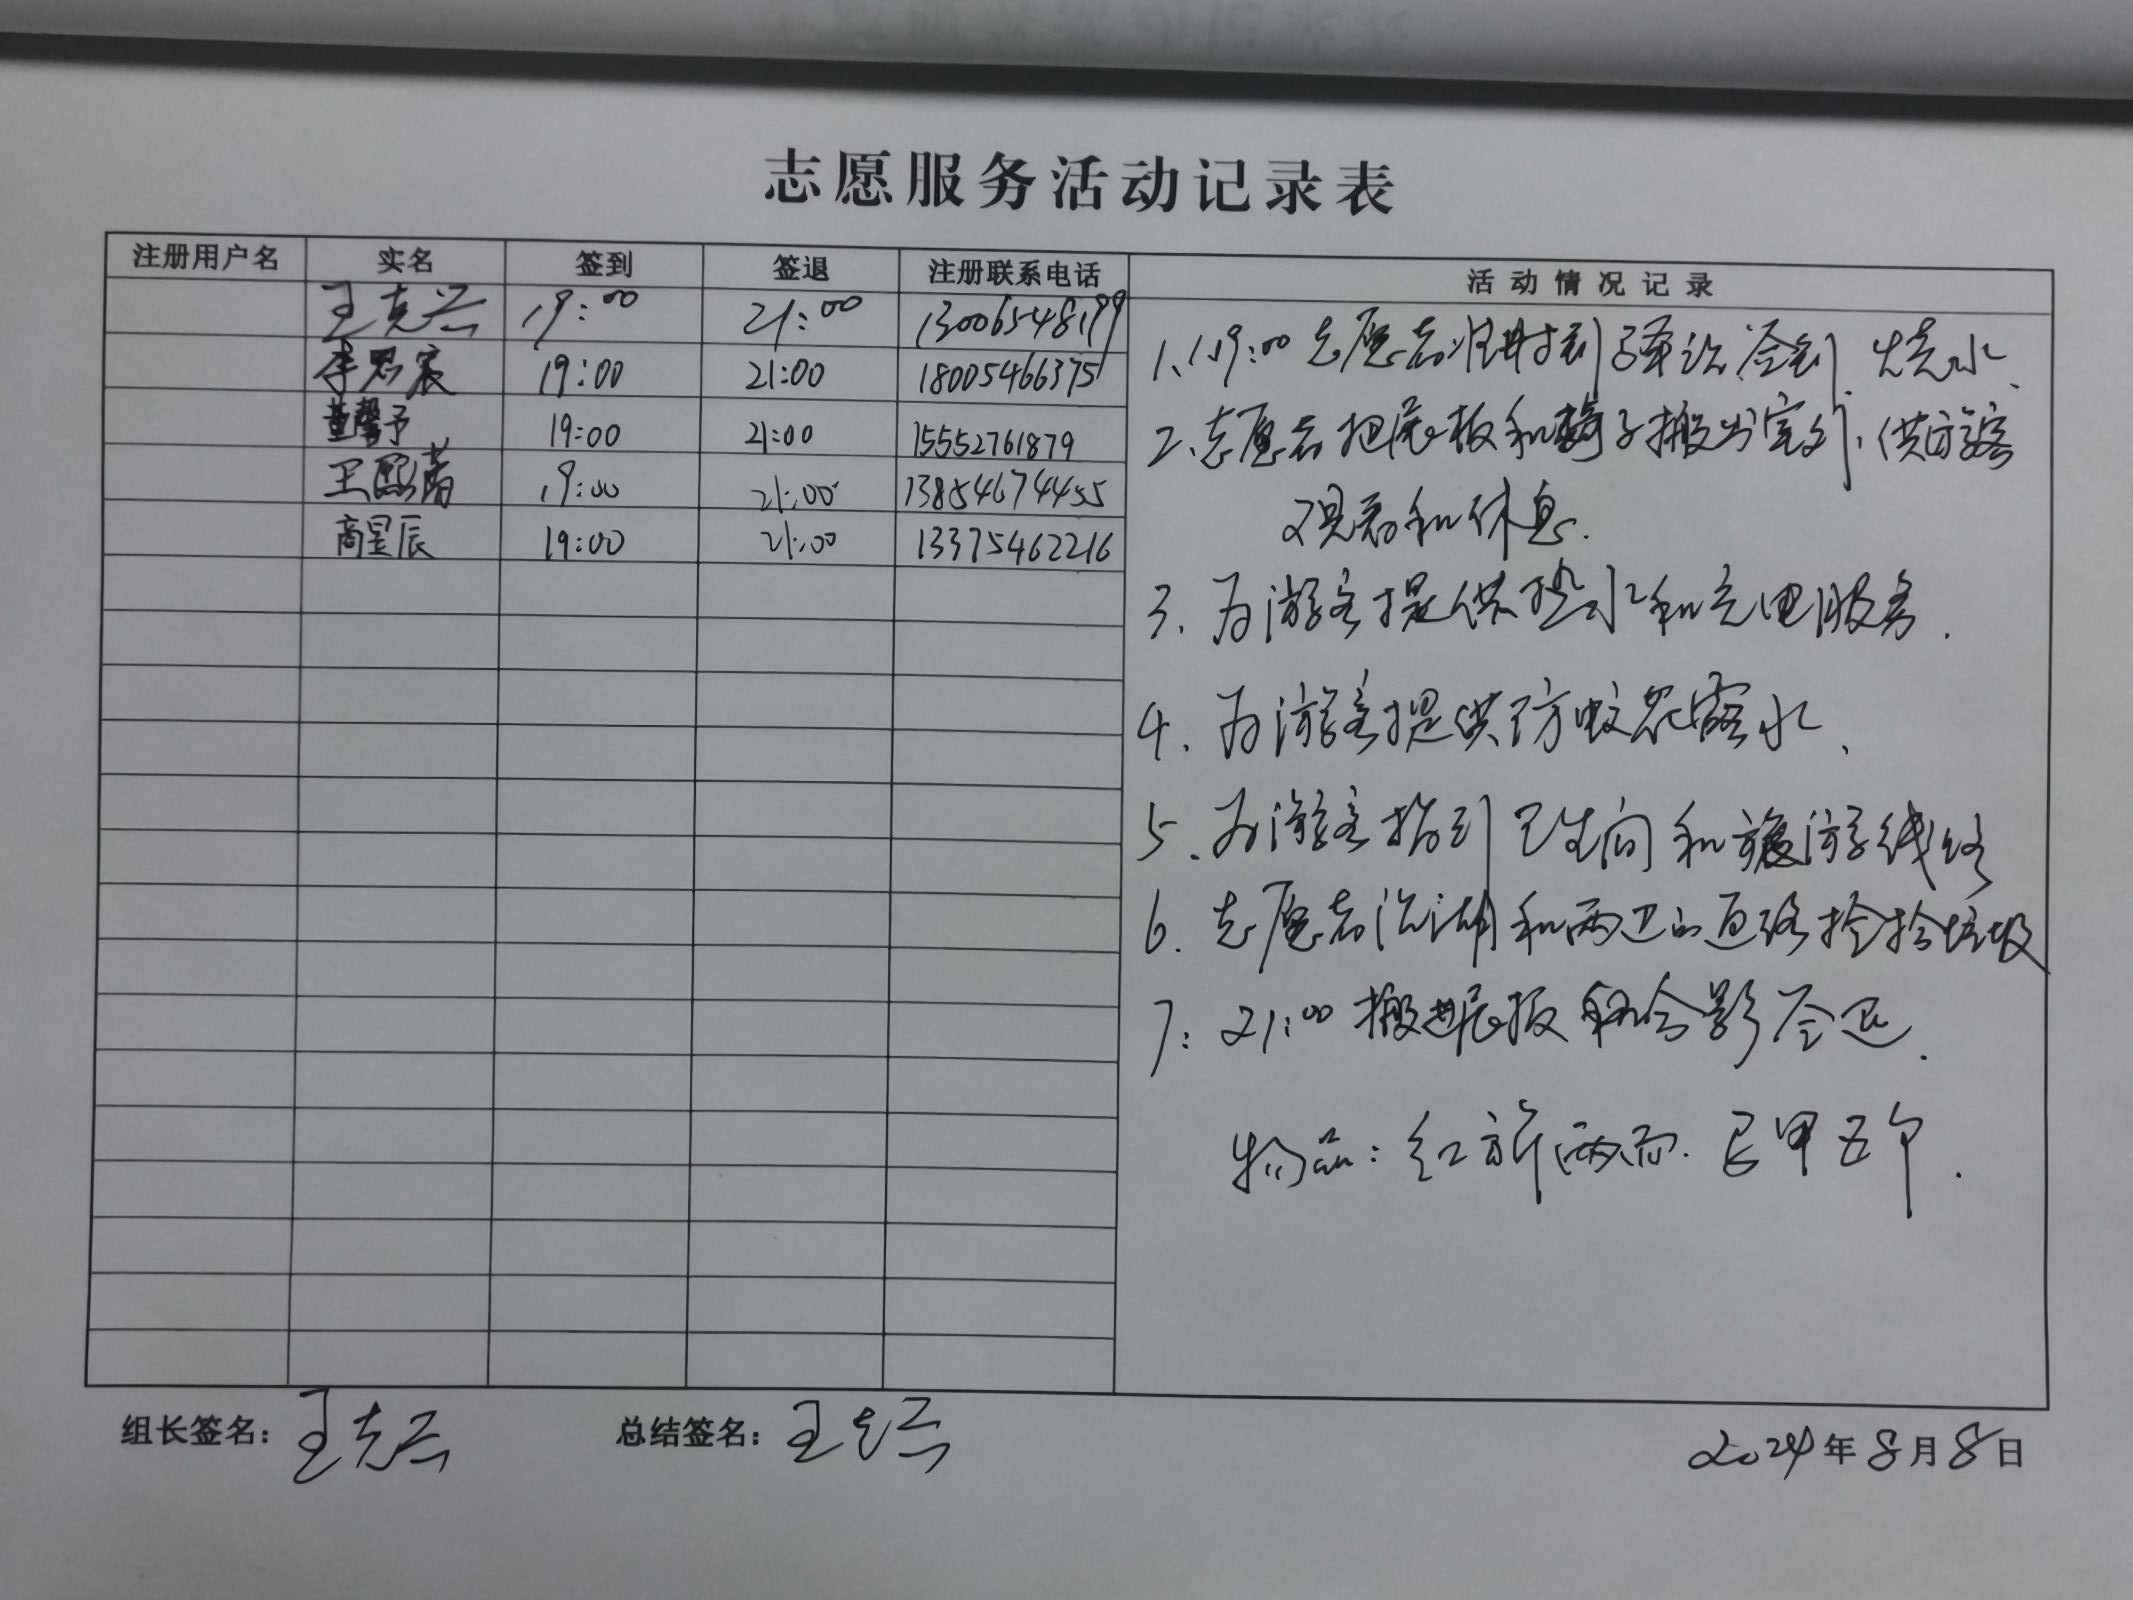 志愿服务活动记录表
注册用户名 实名 签到 签退 注册联系电话 活动情况记录
王克兴 19:00 21:00 13006548199
李思宸 19:00 21:00 18005466375
董馨予 19:00 21:00 15552761879
王熙 19:00 21:00 13854674455
高昱辰 19:00 21:00 13375462216
1、19:00志愿者准时到签到,烧水、
2、志愿者把展板和椅子搬出室外,供游客
观看和休息.
3、为游客提供热水和充电服务.
4、为游客提供防蚊花露水、
5、为游客指引卫生间和旅游线路
6、志愿者沿湖和两边的道路捡拾垃圾
7:21:00搬进展板和合影签退.
物品:红旗两面.马甲五个.
组长签名:王克兴 总结签名:王克兴
2024年8月8日